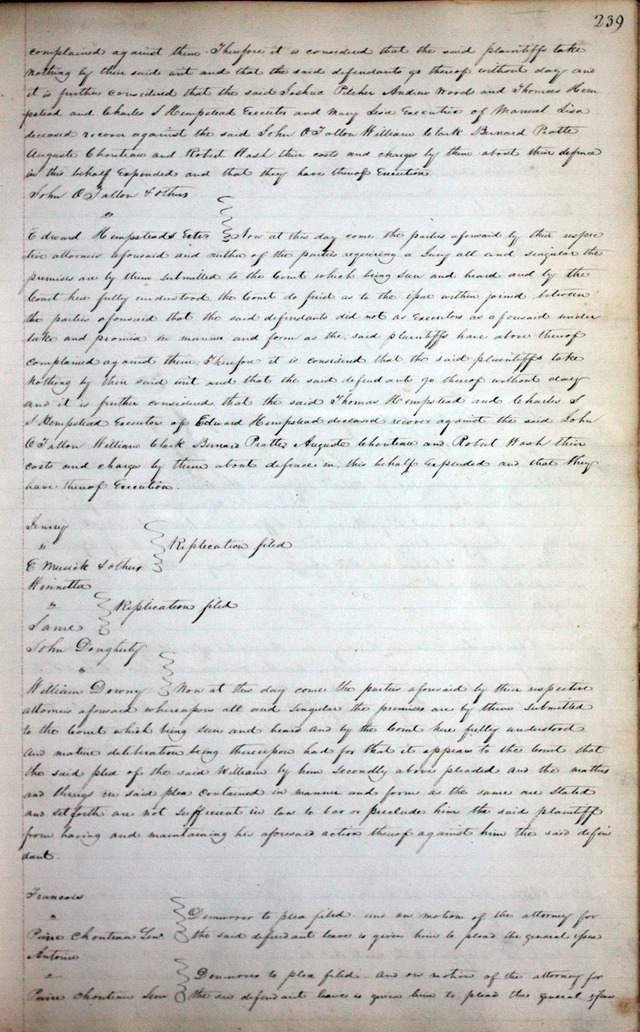 239
complained against them. Therefore it is considered that the said plaintiffs take
nothing by their said writ and that the said defendants go thereof without day and
it is further considered that the said Joshua Pilcher Andrew Woods and Thomas Hem
pstead and Charles S Hempstead Executor and Mary Lisa Executrix of Manuel Lisa
deceased recover against the said John O'Fallon William Clark Bernard Pratte
Auguste Chouteau and Robert Wash their costs and charges by them about their defence
in this behalf Expended and that they have thereof Execution
John O Fallon & others
"
Edward Hempsteads Exters Now at this day come the parties aforesaid by their respec
tive attornies aforesaid and neither of the parties requiring a Jury all and singular the
premises are by them submitted to the Court which being seen and heard and by the
Court here fully understood the Court do find as to the issue within joined between
the parties aforesaid that the said defendants did not as Executors as aforesaid under
take and promise in manner and form as the said plaintiffs have above thereof
complained against them. Therefore it is considered that the said plaintiffs take
nothing by their said writ and that the said defendants go thereof without day
and it is further considered that the said Thomas Hempstead and Charles S
S Hempstead Executors of Edward Hempstead deceased recover against the said John
O Fallon William Clark Bernard Pratte Auguste Chouteau and Robert Wash their
costs and charges by them about defence in this behalf Expended and that they
have thereof Execution.
Jenny
" Replication filed
E Musick & others
Winnetta
" Replication filed
Same
John Dougherty
"
William Downy Now at this day come the parties aforesaid by their respective
attornies aforesaid whereupon all and singular the premises are by them submitted
to the Court which being seen and heard and by the Court here fully understood
and mature deliberation being thereupon had for that it appears to the Court that
the said plea of the said William by him secondly above pleaded and the matters
and things in said plea contained in manner and form as the same are stated
and setforth are not sufficient in law to bar or preclude him the said plaintiff
from having and maintaining his aforesaid action thereof against him the said defen
dant.
Francois
" Demurrer to plea filed and on motion of the attorney for
Pierre Chouteau Senr the said defendant leave is given him to plead the general issue
Antoine
" Demurrer to plea filed - and on motion of the attorney for
Pierre Chouteau Senr the said defendant leave is given him to plead the general issue